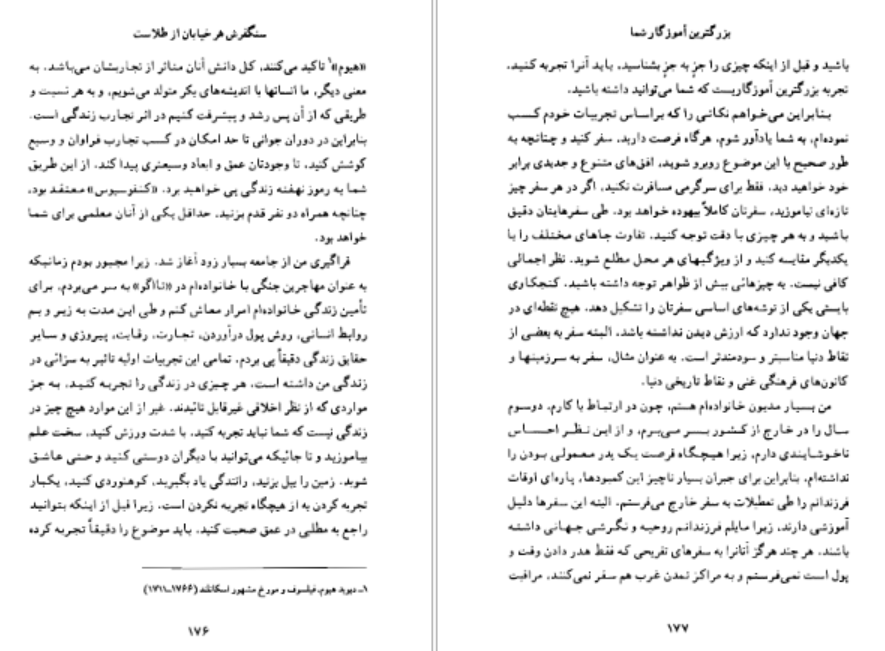 سنگفرش هر خیابان از طلاست
«هیوم»۱ تاکید می‌کنند، کل دانش آنان متاثر از تجاربشان می‌باشد. به
معنی دیگر، ما انسانها با اندیشه‌های بکر متولد می‌شویم، و به هر نسبت و
طریقی که از آن پس رشد و پیشرفت کنیم در اثر تجارب زندگی است.
بنابراین در دوران جوانی تا حد امکان در کسب تجارب فراوان و وسیع
کوشش کنید، تا وجودتان عمق و ابعاد وسیعتری پیدا کند. از این طریق
شما به رموز نهفته زندگی پی خواهید برد. «کنفوسیوس» معتقد بود،
چنانچه همراه دو نفر قدم بزنید، حداقل یکی از آنان معلمی برای شما
خواهد بود.
فراگیری من از جامعه بسیار زود آغاز شد. زیرا مجبور بودم زمانیکه
به عنوان مهاجرین جنگی با خانواده‌ام در «تااگو» به سر می‌بردم، برای
تأمین زندگی خانواده‌ام امرار معاش کنم و طی این مدت به زیر و بم
روابط انسانی، روش پول درآوردن، تجارت، رقابت، پیروزی و سایر
حقایق زندگی دقیقاً پی بردم. تمامی این تجربیات اولیه تاثیر به سزائی در
زندگی من داشته است. هر چیزی در زندگی را تجربه کنید. به جز
مواردی که از نظر اخلاقی غیرقابل تائیدند. غیر از این موارد هیچ چیز در
زندگی نیست که شما نباید تجربه کنید. با شدت ورزش کنید. سخت علم
بیاموزید و تا جائیکه می‌توانید با دیگران دوستی کنید و حتی عاشق
شوید. زمین را بیل بزنید، رانندگی یاد بگیرید، کوهنوردی کنید، یکبار
تجربه کردن به از هیچگاه تجربه نکردن است. زیرا قبل از اینکه بتوانید
راجع به مطلبی در عمق صحبت کنید. باید موضوع را دقیقاً تجربه کرده
۱ـ دیوید هیوم، فیلسوف و مورخ مشهور اسکاتلند (۱۷۶۶ـ۱۷۱۱)
۱۷۶
بزرگترین آموزگار شما
باشید و قبل از اینکه چیزی را جزِ به جزِ بشناسید، باید آنرا تجربه کنید.
تجربه بزرگترین آموزگاریست که شما می‌توانید داشته باشید.
بنابراین می‌خواهم نکاتی را که براساس تجربیات خودم کسب
نموده‌ام، به شما یادآور شوم. هرگاه فرصت دارید، سفر کنید و چنانچه به
طور صحیح با این موضوع روبرو شوید، افق‌های متنوع و جدیدی برابر
خود خواهید دید. فقط برای سرگرمی مسافرت نکنید. اگر در هر سفر چیز
تازه‌ای نیاموزید، سفرتان کاملاً بیهوده خواهد بود. طی سفرهایتان دقیق
باشید و به هر چیزی با دقت توجه کنید. تفاوت جاهای مختلف را با
یکدیگر مقایسه کنید و از ویژگیهای هر محل مطلع شوید. نظر اجمالی
کافی نیست. به چیزهائی بیش از ظواهر توجه داشته باشید. کنجکاوی
بایستی یکی از توشه‌های اساسی سفرتان را تشکیل دهد. هیچ نقطه‌ای در
جهان وجود ندارد که ارزش دیدن نداشته باشد. البته سفر به بعضی از
نقاط دنیا مناسبتر و سودمندتر است. به عنوان مثال، سفر به سرزمینها و
کانون‌های فرهنگی غنی و نقاط تاریخی دنیا.
من بسیار مدیون خانواده‌ام هستم، چون در ارتباط با کارم، دوسوم
سال را در خارج از کشور بسر می‌برم، و از این نظر احساس
ناخوشایندی دارم، زیرا هیچگاه فرصت یک پدر معمولی بودن را
نداشته‌ام. بنابراین برای جبران بسیار ناچیز این کمبودها، پاره‌ای اوقات
فرزندانم را طی تعطیلات به سفر خارج می‌فرستم. البته این سفرها دلیل
آموزشی دارند، زیرا مایلم فرزندانم روحیه و نگرشی جهانی داشته
باشند. هر چند هرگز آنانرا به سفرهای تفریحی که فقط هدر دادن وقت و
پول است نمی‌فرستم و به مراکز تمدن غرب هم سفر نمی‌کنند. مراقبت
۱۷۷